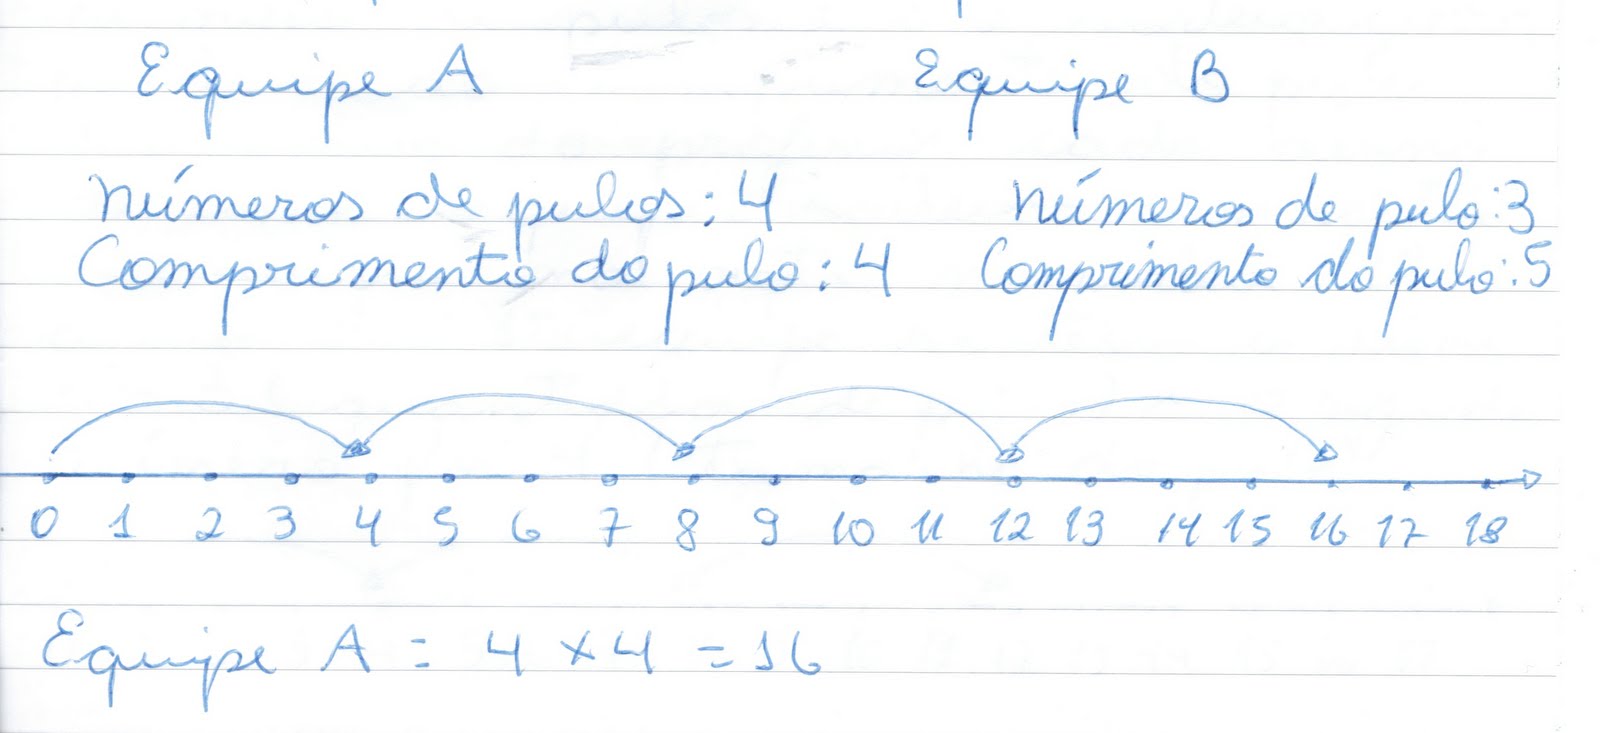 Equipe A Equipe B
Números de pulos: 4 Números de pulo: 3
Comprimento do pulo: 4 Comprimento do pulo: 5
0 1 2 3 4 5 6 7 8 9 10 11 12 13 14 15 16 17 18
Equipe A = 4 x 4 = 16